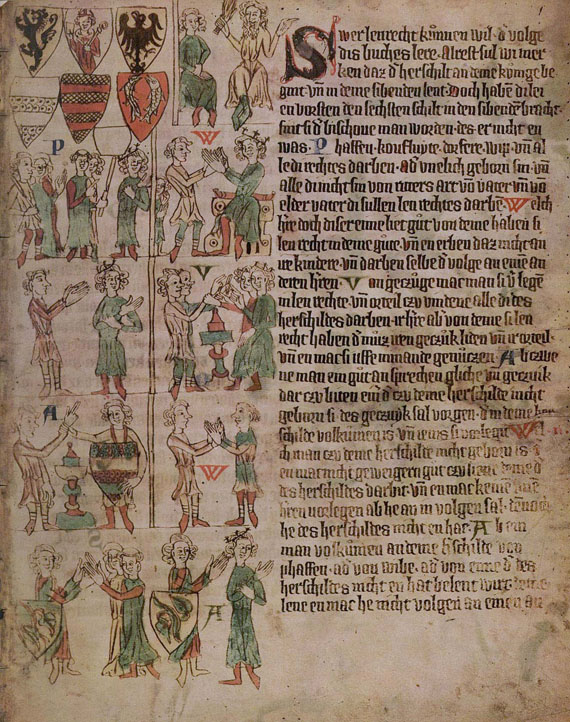 Swer lenrecht kunnen wil d' volge
dis buches lere. Alrest sul wir mer
ken daz d' herschilt an deme kunige be
gint. vn in deme sibenden lent. Doch haben di lei
en vorsten den sechsten schilt in den sibenden bracht
sint si d' bischove man worden. des er nicht en
was. Phaffen. koufluyte. dorfere. wip. vn al
le di rechtes darben. ad' unelich geborn sin. vn
alle di nicht sin von ritters art. von vater. vn vo
elder vater di sullen len rechtes darbe. Welch
h're doch diser eime liet gut von deme haben si
len recht in deme gute. vn en erben daz nicht an
ire kindere. vn darben selbe d' volge an eine an
deren h'ren. Von geczuge mac man si v'legen
in len rechte. vn orteil czu vindene alle di des
herschildes darben. ir h're ab' von deme si len
recht haben d' muz iren geczuk liden. vn ir orteil.
vn en mac si uffe nimande genuczen. Ab czwe
ne man ein gut an sprechen gliche. vn geczuk
dar czu biten. ein' d' czu deme herschilde nicht
geborn si. des geczuk sal vorgen. d' in deme her
schilde volkumen is. vn ienis si vorlegit. W
ch man czu deme herschilde nicht geborn is.
en mac nicht geweigern gut czu lien. deme d'
des herschildes darbit. vn en mac keime
h'ren vorlegen ab he an in volgen sal. den
he des herschildes nicht en hat. Ab ein
man volkumen an deme h'schilde von
phaffen. ad' von wibe. ad' von eime d' des
herschildes nicht en hat belent wirt.
lene en mac he nicht volgen an einen an
P
W
V
A
W
S
A